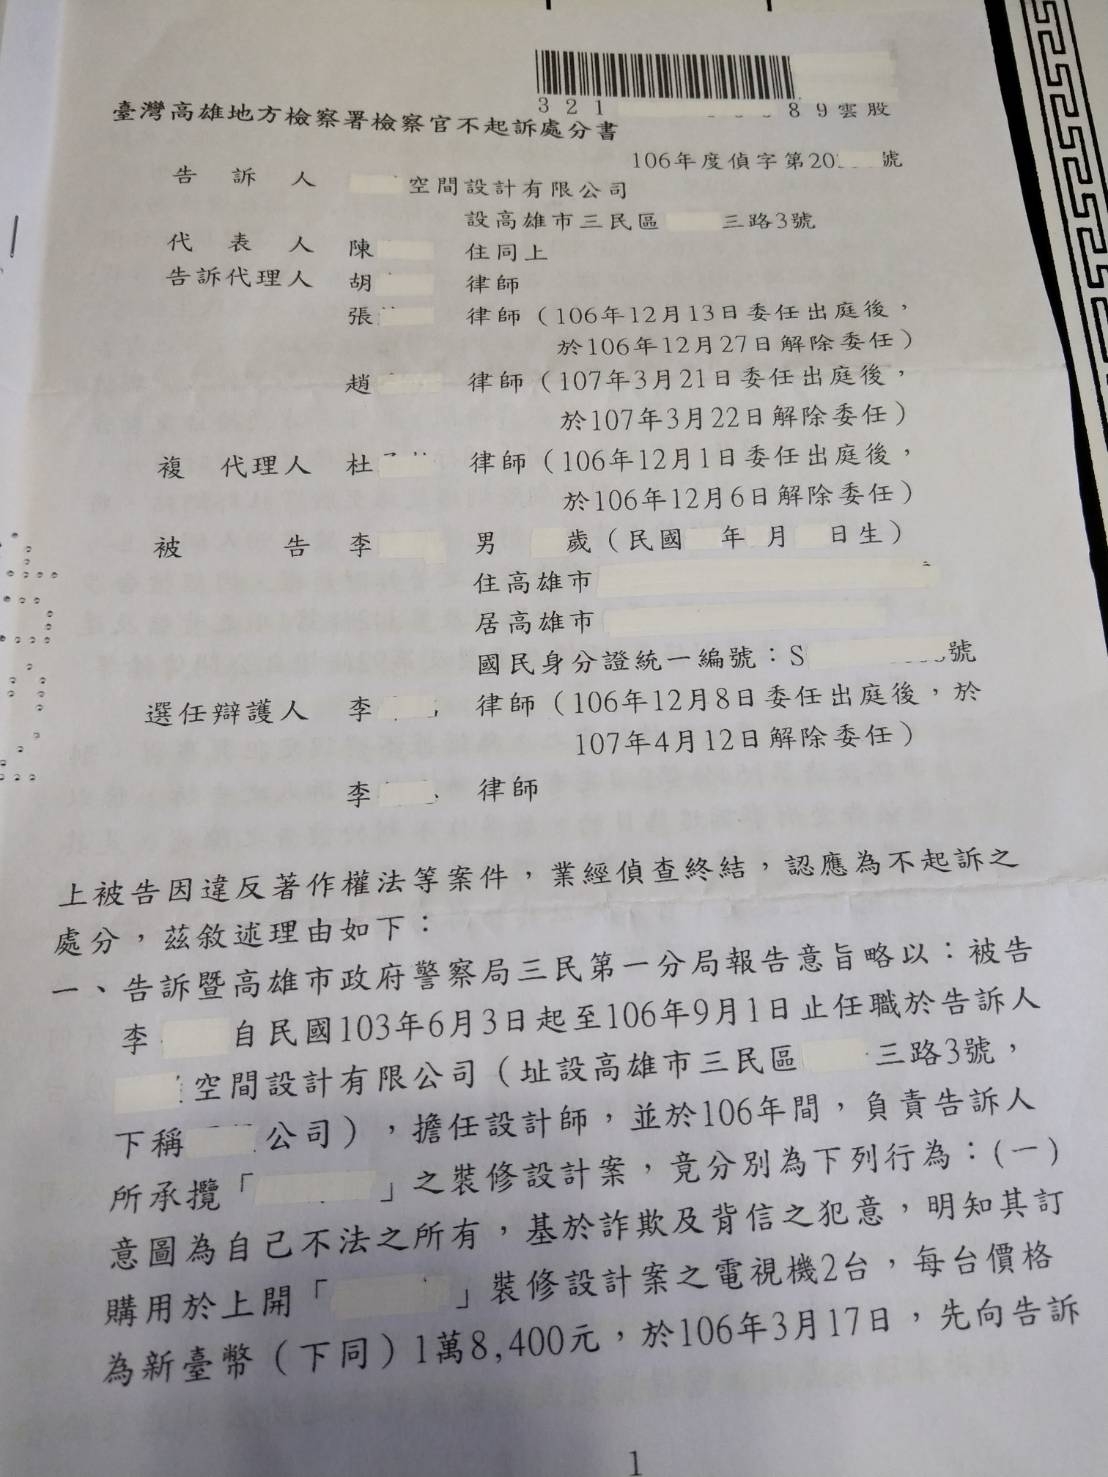 321 89雲股
臺灣高雄地方檢察署檢察官不起訴處分書
106年度偵字第20 號
告訴人 空間設計有限公司
設高雄市三民區 三路3號
代表人 陳 住同上
告訴代理人 胡 律師
張 律師（106年12月13日委任出庭後，
於106年12月27日解除委任）
趙 律師（107年3月21日委任出庭後，
於107年3月22日解除委任）
複代理人 杜 律師（106年12月1日委任出庭後，
於106年12月6日解除委任）
被告 李 男 歲（民國 年 月 日生）
住高雄市
居高雄市
國民身分證統一編號：S 號
選任辯護人 李 律師（106年12月8日委任出庭後，於
107年4月12日解除委任）
李 律師
上被告因違反著作權法等案件，業經偵查終結，認應為不起訴之
處分，茲敘述理由如下：
一、告訴暨高雄市政府警察局三民第一分局報告意旨略以：被告
李 自民國103年6月3日起至106年9月1日止任職於告訴人
空間設計有限公司（址設高雄市三民區 三路3號，
下稱 公司），擔任設計師，並於106年間，負責告訴人
所承攬「 」之裝修設計案，竟分別為下列行為：(一)
意圖為自己不法之所有，基於詐欺及背信之犯意，明知其訂
購用於上開「 」裝修設計案之電視機2台，每台價格
為新臺幣（下同）1萬8,400元，於106年3月17日，先向告訴
1